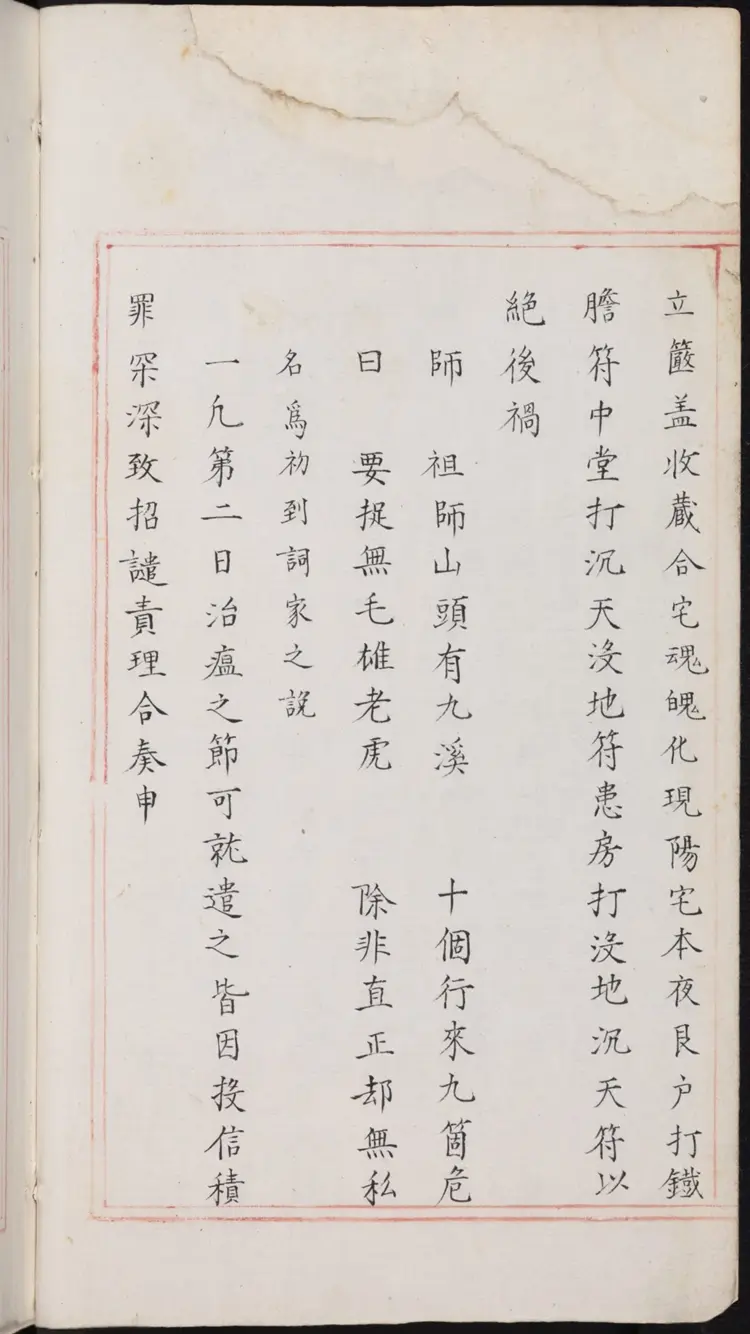 立篢盖收蔵合宅魂魄化現陽宅本夜艮户打鐵
膽符中堂打沉天没地符患房打没地沉天符以
絕後禍
師　祖師山頭有九溪　十個行來九箇危
曰　要捉無毛雄老虎　除非直正却無私
名爲初到詞家之説
一凢第二日治瘟之節可就遣之皆因投信積
罪罙深致招譴責理合奏申